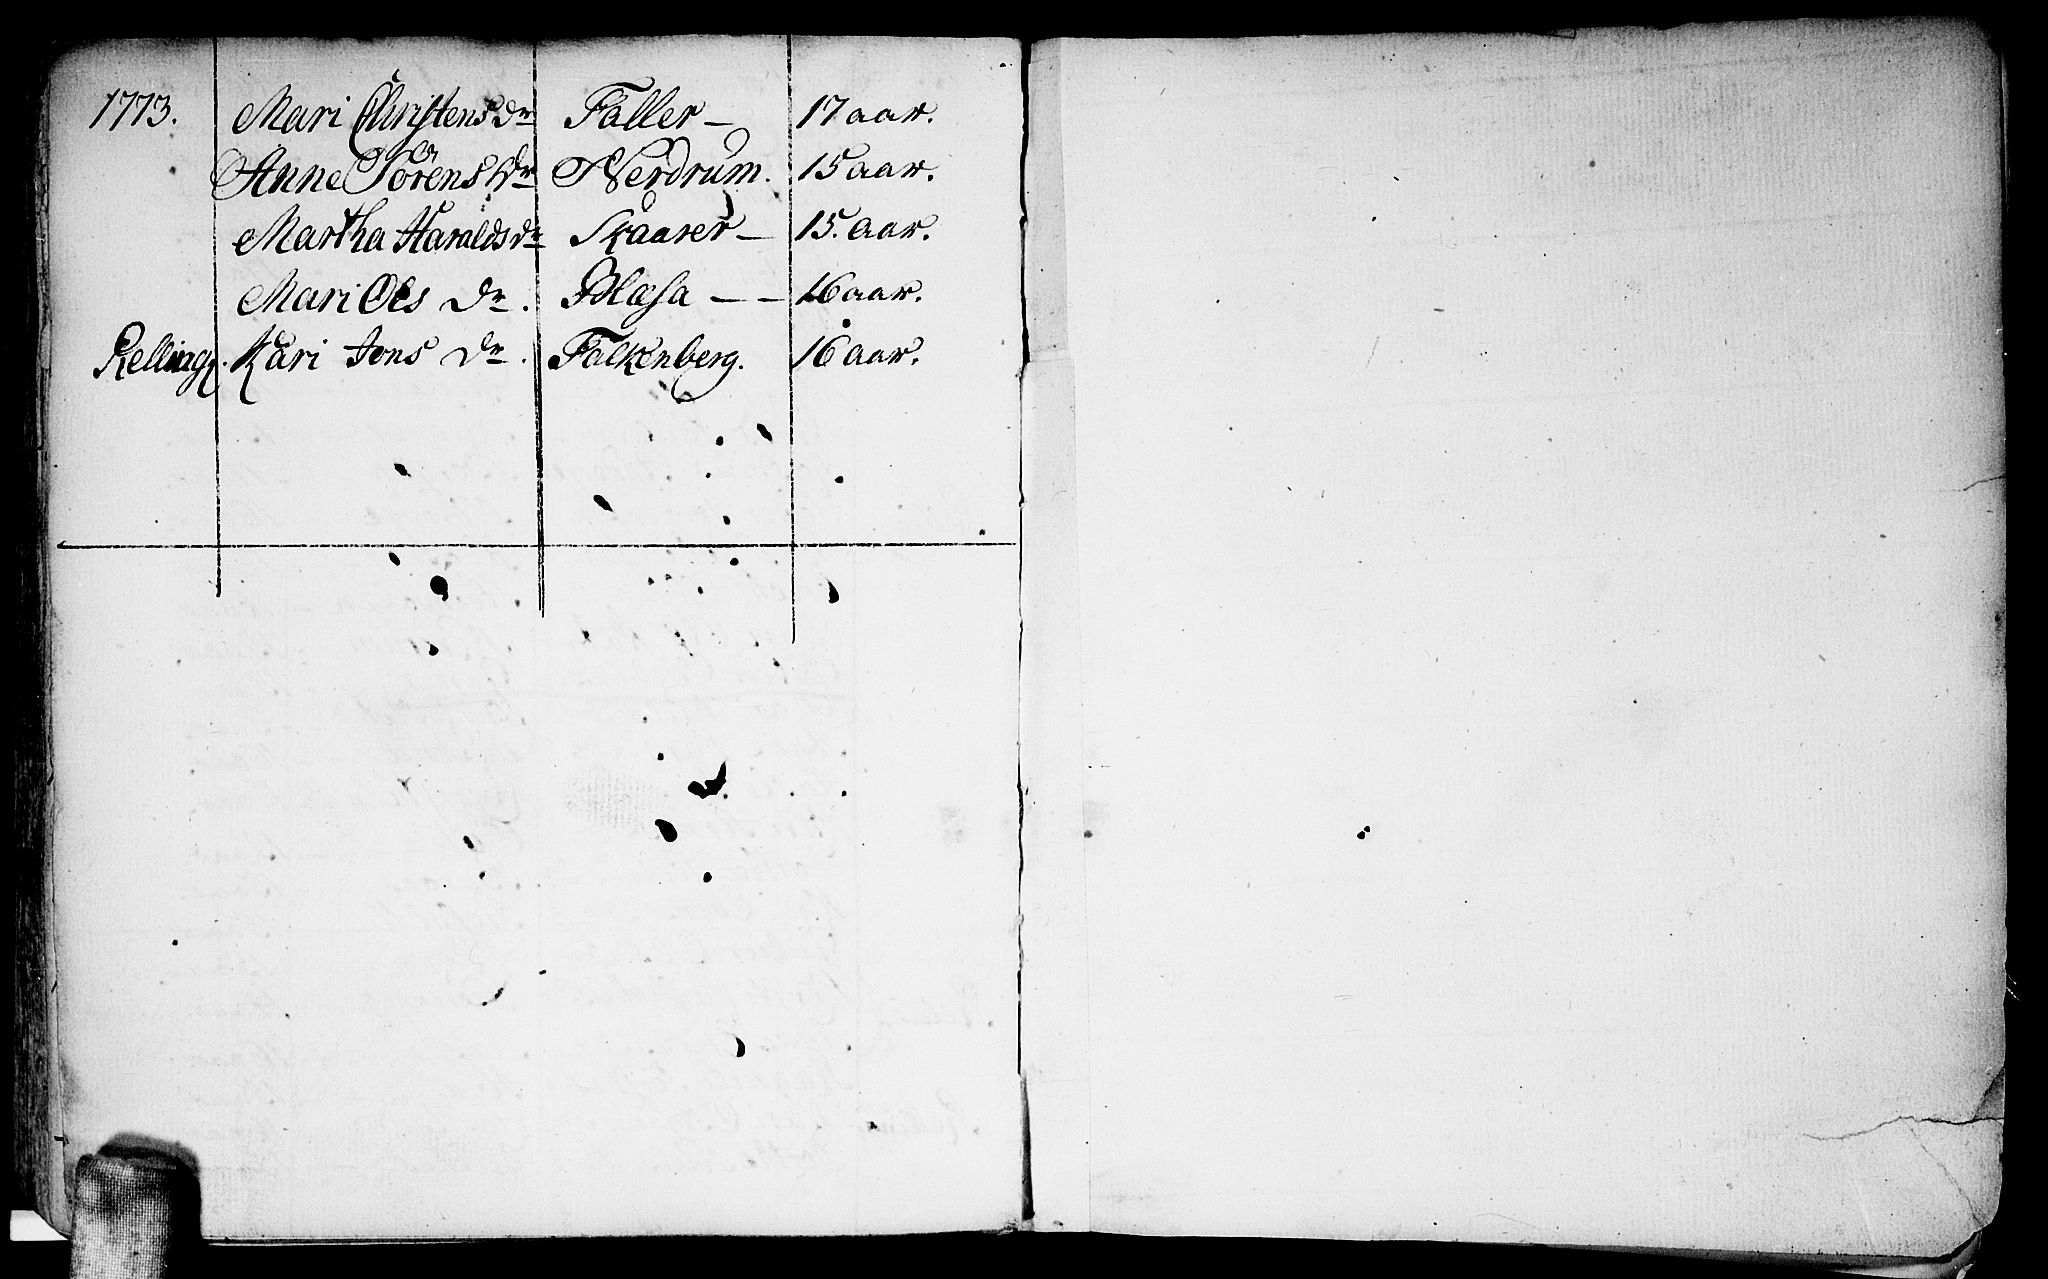 1773. Mari Christens Dr Faller — 17 aar.
Anne Sörens Dr Nerdrum. 15 aar.
Martha Haralds Dr Skaarer — 15. aar.
Mari Ols Dr. Blæsa — — 16 aar.
Relling. Kari Jons Dr. Falkenberg. 16 aar.